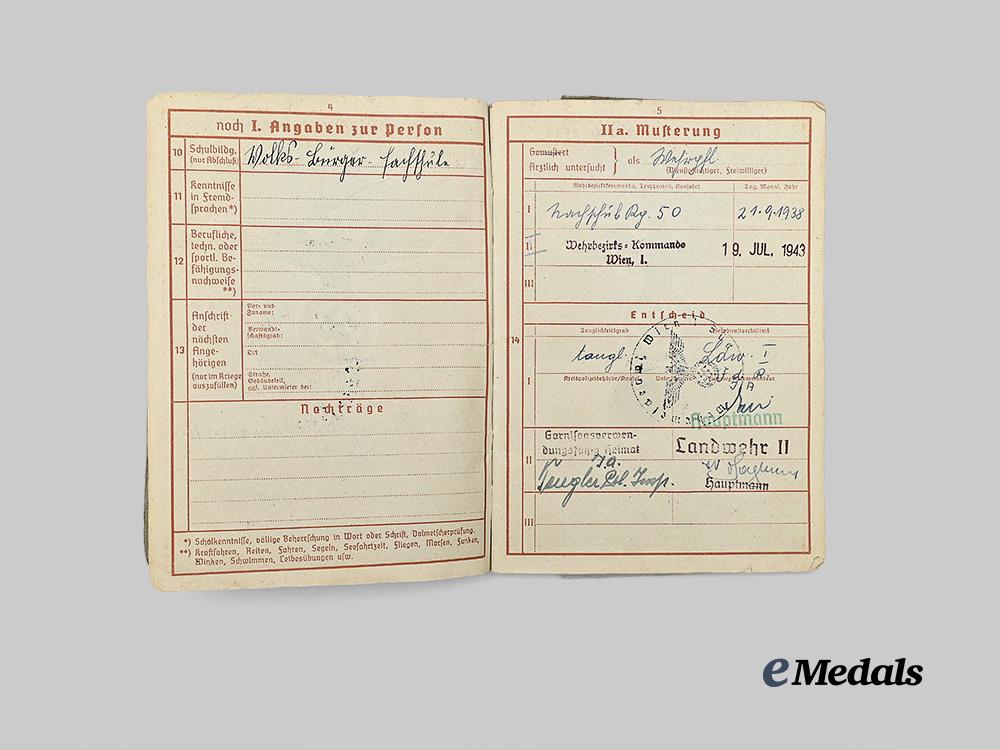 4
noch I. Angaben zur Person
10 Schulbildg. (nur Abschluß)
Volks- Bürger- Fachschule
11 Kenntnisse in Fremd-sprachen *)
12 Berufliche, techn. oder sportl. Be-fähigungs-nachweise **)
13 Anschrift der nächsten Ange-hörigen
(nur im Kriege auszufüllen)
Vor- und Zuname:
Verwandt-schaftsgrad:
Ort
Straße, Gebäudeteil, ggf. Untermieter bei:
Nachträge
*) Schulkenntnisse, völlige Beherrschung in Wort oder Schrift, Dolmetscherprüfung.
**) Kraftfahren, Reiten, Fahren, Segeln, Seefahrtzeit, Fliegen, Morsen, Funken,
Winken, Schwimmen, Leibesübungen usw.
5
IIa. Musterung
Gemustert
Ärztlich untersucht
als Wehrpfl.
(Dienstpflichtiger, Freiwilliger)
Wehrbezirkskommando, Truppenteil, Konsulat
Tag, Monat, Jahr
I Nachschub Kp. 50 21.9.1938
II Wehrbezirks-Kommando
Wien, I.
19. JUL. 1943
III
Entscheid
14
Tauglichkeitsgrad
Wehrdienstverhältnis
I taugl. Ldw. I
Hauptmann
II Garnisonsverwen-
dungsfähig Heimat
Landwehr II
Hauptmann
III
eMedals